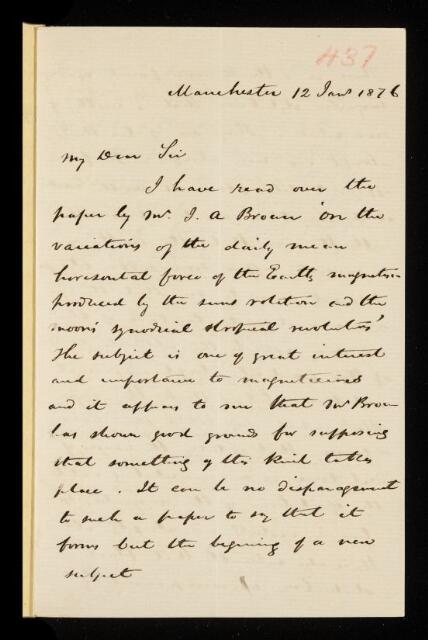 437
Manchester 12 Jan 1876
My Dear Sir
I have read over the
paper by Mr. J. A Broun 'on the
variations of the daily mean
horizontal force of the Earths magnetism
produced by the suns rotation and the
moon's synodical & tropical revolutions'
The subject is one of great interest
and importance to
and it appears to me that Mr Broun
has shown good grounds for supposing
that something of this kind takes
place. It can be no disparagment
to such a paper to say that it
forms but the begining of a new
subject